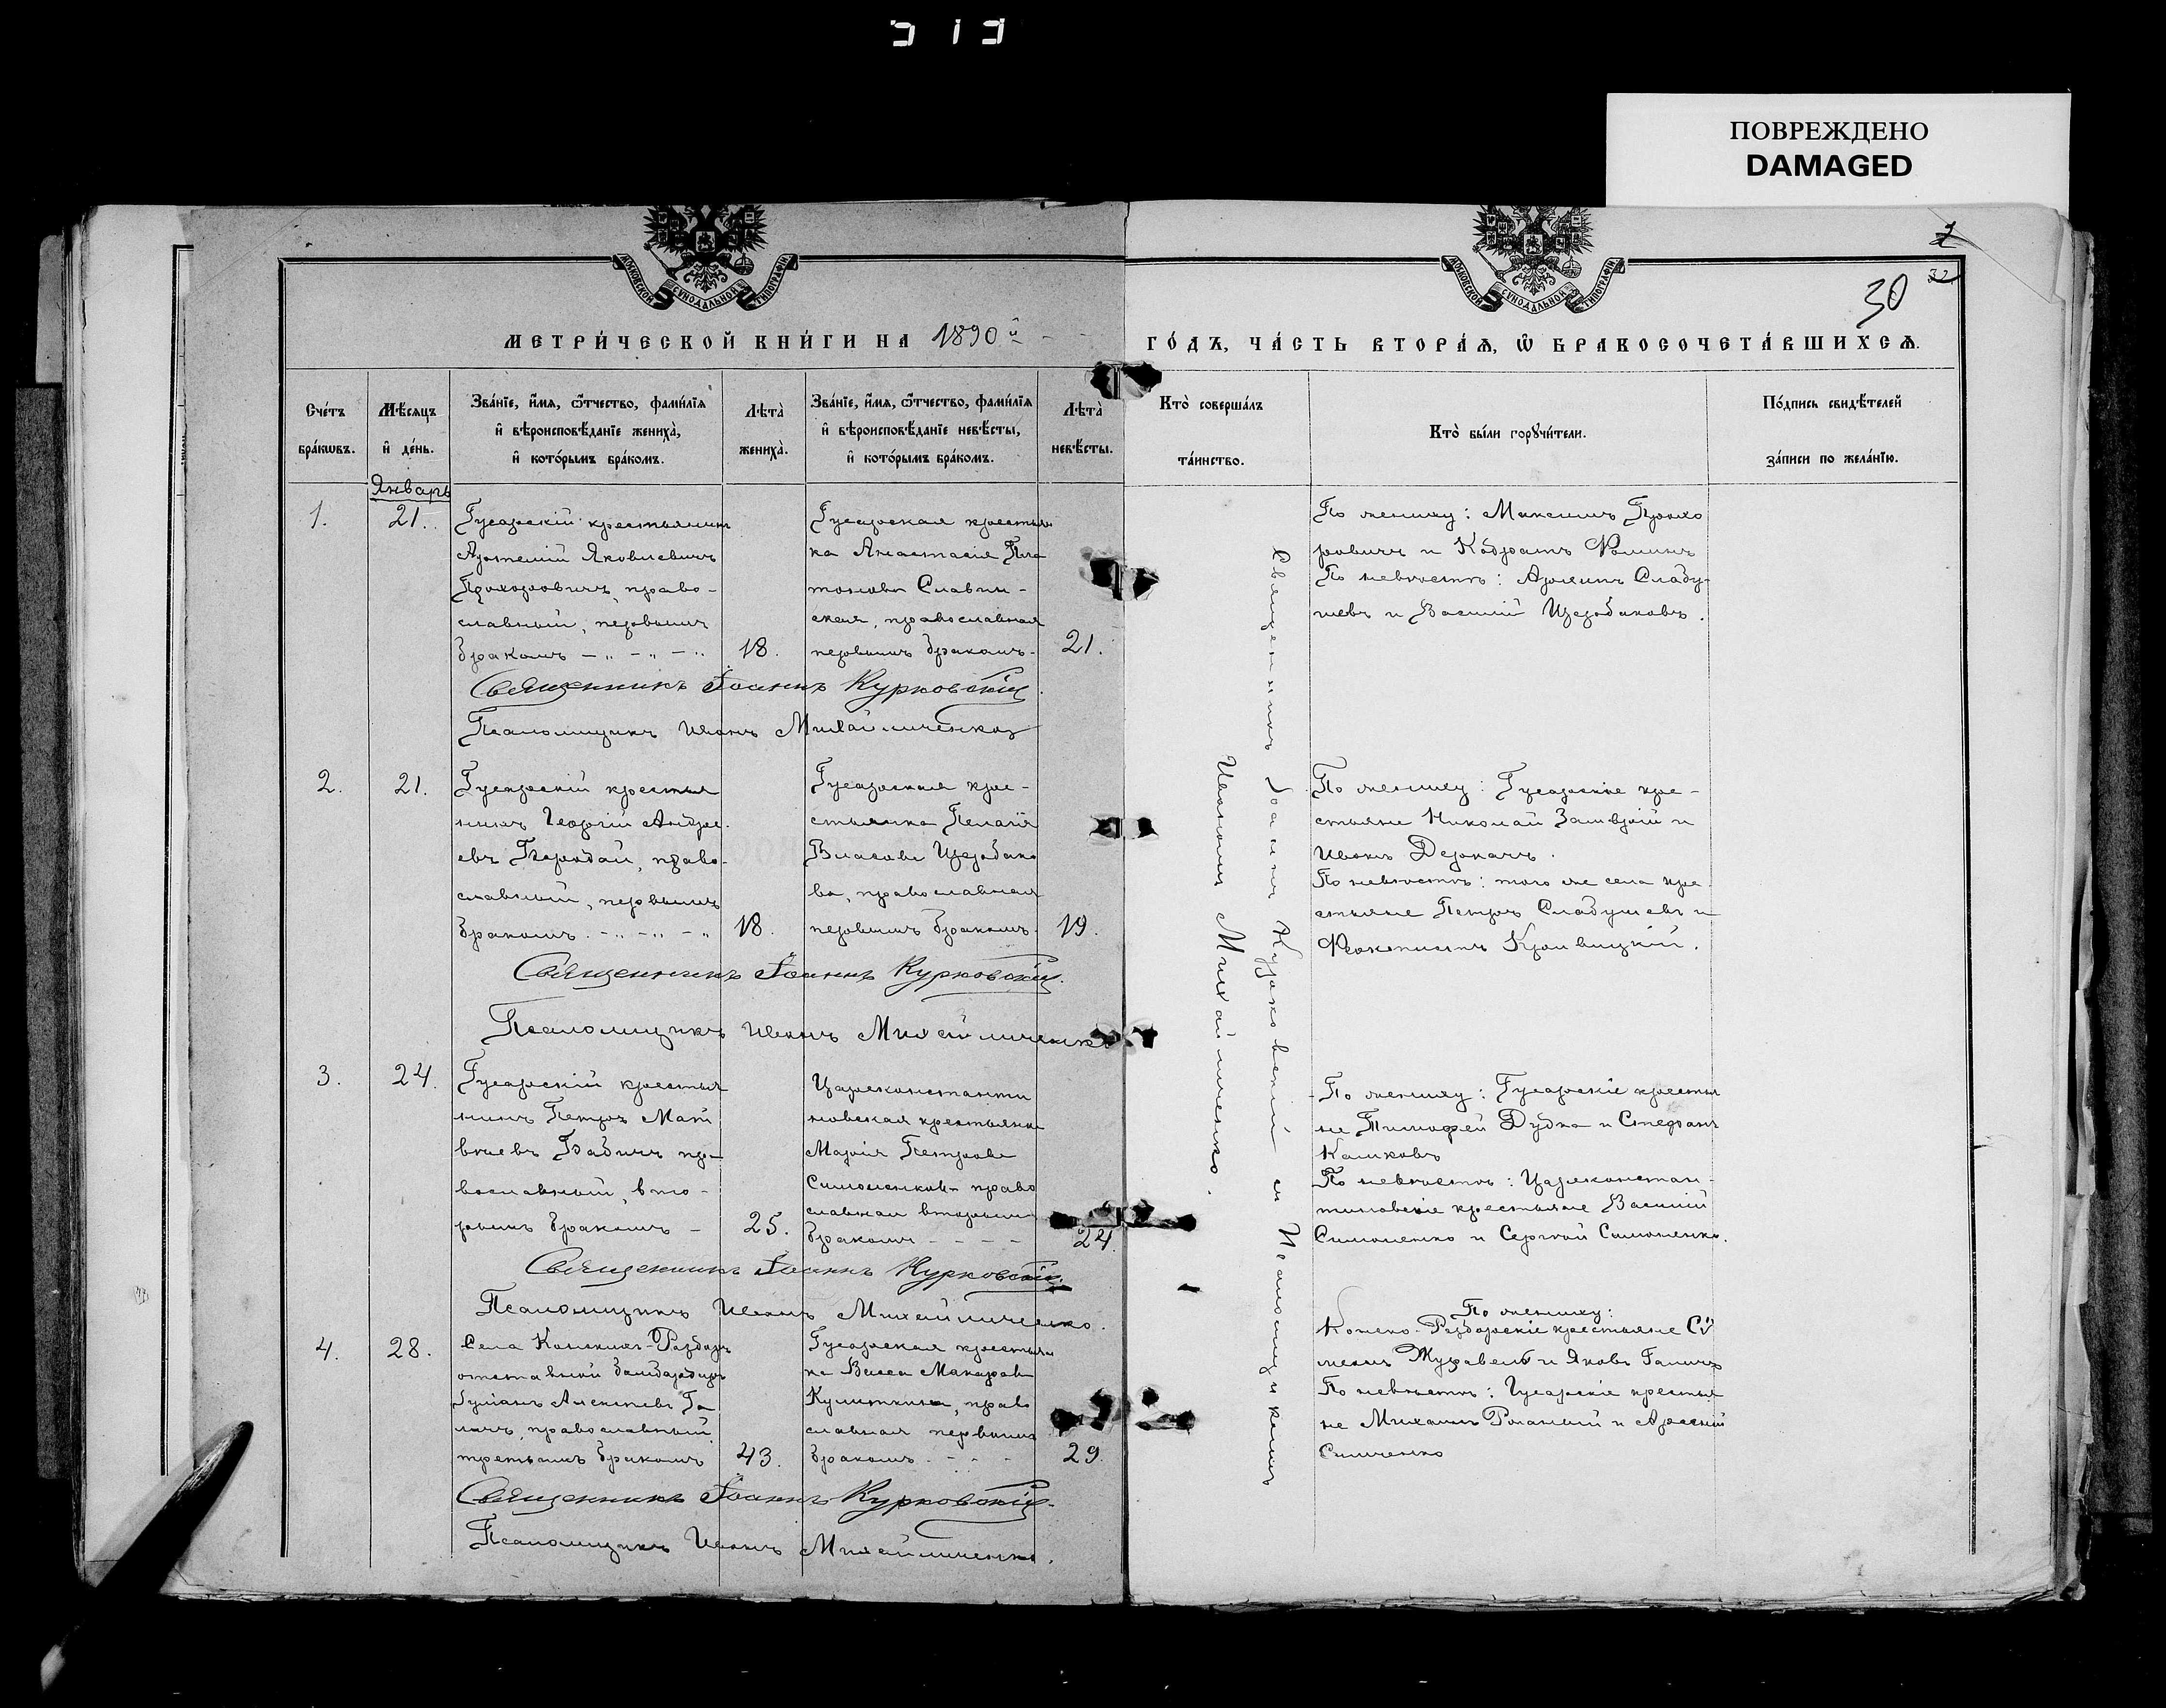 313
ПОВРЕЖДЕНО
DAMAGED
МОСКОВСКОЙ СѴНОДАЛЬНОЙ ТИПОГРАФІИ
МОСКОВСКОЙ СѴНОДАЛЬНОЙ ТИПОГРАФІИ
32
30
МЕТРИ́ЧЕСКОЙ КНИ́ГИ НА 1890й
ГО́ДЪ, ЧА́СТЬ ВТОРА́Ѧ, Ѡ БРАКОСОЧЕТА́ВШИХСѦ.
Сче́тъ
бра́кѡвъ.
Мѣ́сяцъ
и҆ де́нь.
Зва́нїе, и҆́мѧ, ѻ҆́тчество, фами́лїѧ
и҆ вѣроисповѣ́данїе жениха̀,
и҆ кото́рымъ бра́комъ.
Лѣта̀
жениха̀.
Зва́нїе, и҆́мѧ, ѻ҆́тчество, фами́лїѧ
и҆ вѣроисповѣ́данїе невѣ́сты,
и҆ кото́рымъ бра́комъ.
Лѣта̀
невѣ́сты.
Кто̀ соверша́лъ
та́инство.
Кто̀ бы́ли порꙋчи́тели.
По́дпись свидѣ́телей
за́писи по жела́нїю.
Январь
1.
21.
Гусарскій крестьянинъ
Артемій Яковлевичъ
Прохоровичъ, право-
славный, первымъ
бракомъ
18.
Гусарская крестьян
ка Анастасія Пла
тонова Славин-
ская, православная
первымъ бракомъ
21.
По жениху: Максимъ Прохо
ровичъ и Кодратъ Фоминъ
По невѣстѣ: Архипъ Сладу-
шевъ и Василій Щербаковъ.
Священникъ Іоаннъ Курковскій
Псаломщикъ Иванъ Михайличенко
2.
21.
Гусарскій крестья
нинъ Георгій Андре-
евъ право-
славный, первымъ
бракомъ
18.
Гусарская кре-
стьянка Пелагія
Власова Щербако
ва, православная
первымъ бракомъ
19.
По жениху: Гусарскіе кре-
стьяне Николай и
Иванъ Деркачъ.
По невѣстѣ: того же села кре-
стьяне Петръ Сладушевъ и
Феоктистъ Кривицкій.
Священникъ Іоаннъ Курковскій.
Псаломщикъ Иванъ Михайличенко
3.
24.
Гусарскій крестья
нинъ Петръ Мат
вѣевъ Бабичъ пра-
вославный, вто-
рымъ бракомъ
25.
Цареконстанти
новская крестьянка
Марія Петрова
Симоненкова право
славная вторымъ
бракомъ
24.
По жениху: Гусарскіе крестья
не Тимофей Дудка и Стефанъ
Калиновъ
По невѣстѣ: Цареконстан-
тиновскіе крестьяне Василій
Симоненко и Сергѣй Симоненко.
Священникъ Іоаннъ Курковскій.
Псаломщикъ Иванъ Михайличенко.
4.
28.
Села Конскихъ-Раздоръ
отставной бомбардиръ
Іуліанъ Алексѣевъ Га
личъ, православный
третьимъ бракомъ
43.
Гусарская крестьян
ка Васса Макарова
православная первымъ
бракомъ
29.
По жениху:
Конско-Раздорскіе крестьяне Сѵ
меонъ Журавель и Яковъ Галичъ
По невѣстѣ: Гусарскіе крестья
не Михаилъ и Арсеній
Симченко
Священникъ Іоаннъ Курковскій.
Псаломщикъ Иванъ Михайличенко.
Священникъ Іоаннъ Курковскій съ Псаломщикомъ
Иваномъ Михайличенко.